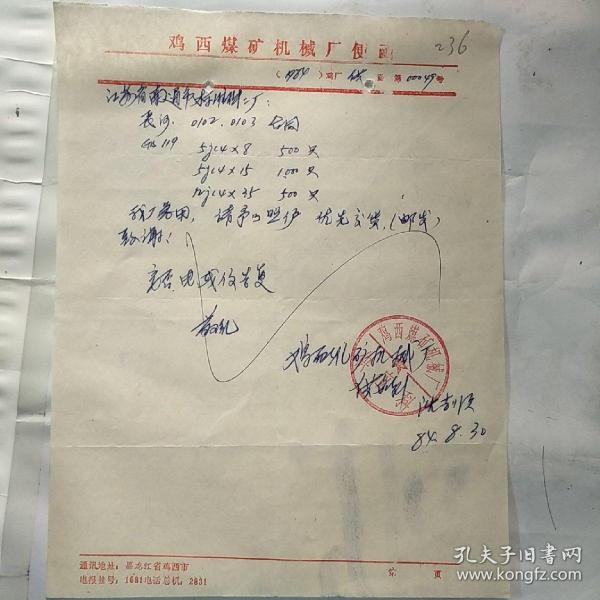 鸡西煤矿机械厂便函
236
(1984) 鸡厂供函第00049号
江苏省南通市标准件二厂:
0102.0103 合同
GB 119
5gc4×8 500只
5gc4×15 1000只
12gc4×35 500只
我厂急用, 请予以照护 优先交货.(邮发)
致谢!
电或信告复
敬礼
鸡西煤矿机械厂
鸡西煤矿机械厂
84.8.30
通讯地址: 黑龙江省鸡西市
电报挂号: 1681电话总机: 2831
第 页
孔夫子旧书网
www.kongfz.com